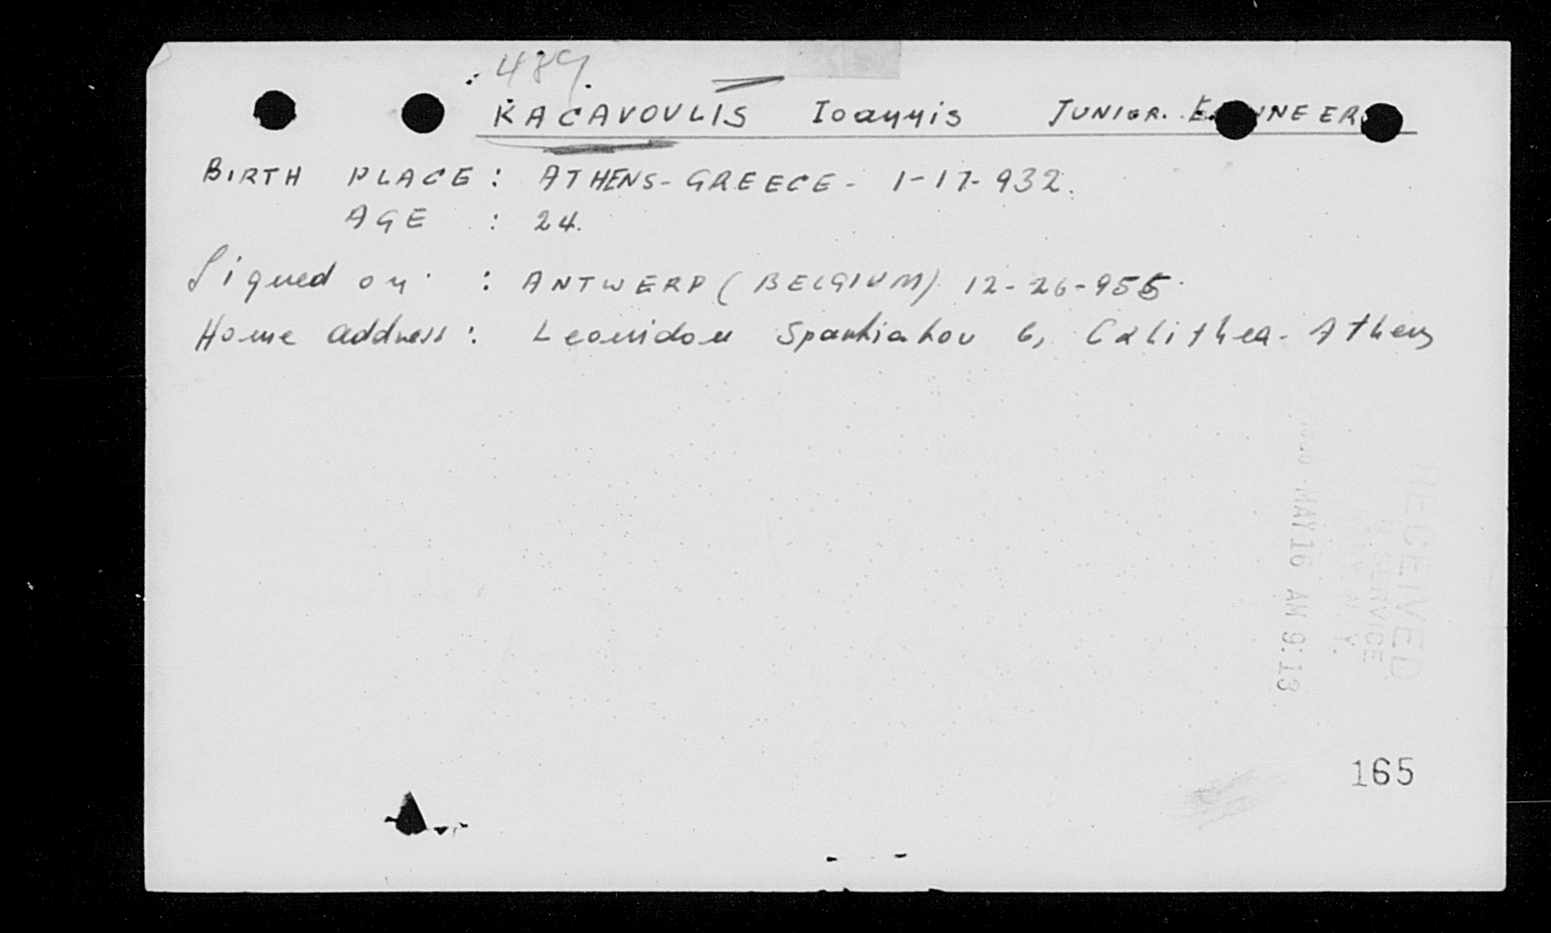 489.
KACAVOVLIS Ioannis JUNIOR. ENGINEER
BIRTH PLACE: ATHENS-GREECE- 1-17-932.
AGE : 24.
Signed on : ANTWERP (BELGIUM) 12-26-955.
Home address: Leonidou Spartiatou 6, Calithea-Athens
RECEIVED
SERVICE
N.Y.
MAY 16 AM 9:13
165